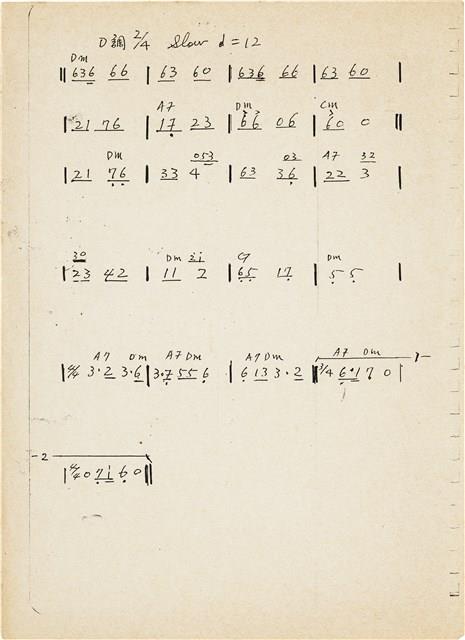 D調 2/4 Slow d=12
Dm
‖ 636 66 | 63 60 | 636 66 | 63 60 |
A7 Dm Cm
| 21 76 | 17 23 | 66 06 | 60 0 ‖
Dm 053 03 A7 32
| 21 76 | 33 4 | 63 36 | 22 3 |
30 Dm 31
| 23 42 | 11 2 | 65 17 | 55 |
Dm
A7 Dm A7 Dm A7 Dm A7 Dm 1-
| 4/4 3·2 3·6 | 3·7 55 6 | 6 13 3·2 ‖ 3/4 6·1 7 0 |
-2
| 4/4 0 7 1 6 0 ‖